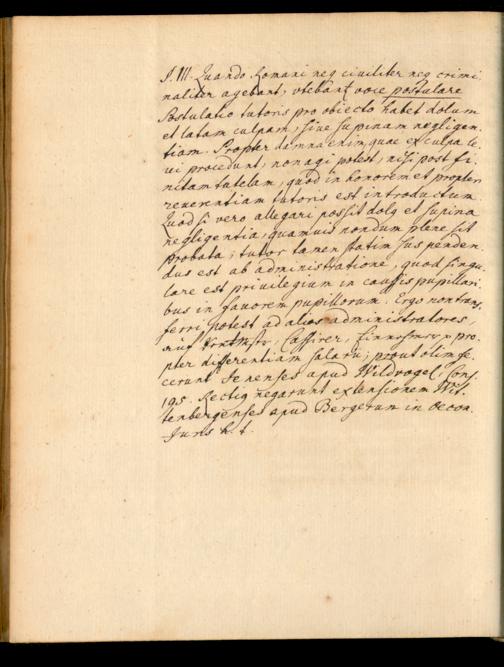 §. III. Quando Romani neq ciuiliter neq crimi
naliter agebant, vtebant voce postulare
Postulatio tutoris pro obiecto habet dolum
et latam culpam, siue supinam negligen
tiam. Propter damna enim, quae ex culpa le
ui procedunt, non agi potest, nisi post fi
nitam tutelam, quod in honorem et propter
reuerentiam tutoris est introductum.
Quod si vero allegari possit dolq et supina
negligentia, quamuis nondum plene sit
probata, tutor tamen statim suspenden
dus est ab administratione, quod singu
lare est priuilegium in caussis pupillari
bus in fauorem pupillorum. Ergo non trans
ferri potest ad alios administratores,
Cassirer, pro
pter differentiam salarii; prout olim fe
cerunt Jenenses apud Wildvogel. Cons.
195. Rectiq negarunt extensionem Wit
tenbergenses apud Bergerum in Oecon.
Juris h. t.